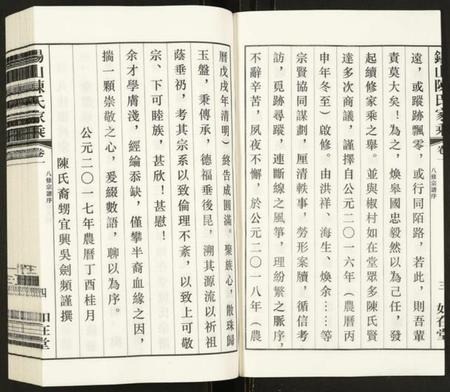 錫山陳氏家乘
卷一
八修宗譜序
三
如在堂
遠,或蹤跡飄零,或行同陌路,若此,則吾輩
責莫大矣!為之,煥皋國忠毅然以為己任,發
起續修家乘之舉。並與椒村如在堂眾多陳氏賢
達多次商議,謹擇自公元二〇一六年(農曆丙
申年冬至)啟修。由洪祥、海生、煥余……等
宗賢協同謀劃,厘清軼事,勞形案牘,循信考
訪,覓跡尋蹤,連斷線之風箏,理紛繁之脈序,
不辭辛苦,夙夜不懈,於公元二〇一八年(農
曆戊戌年清明)終告成圓滿。聚族心,散珠歸
玉盤,秉傳承,德福垂後昆,溯其源流以祈祖
蔭垂礽,考其宗系以致倫理不紊,以致上可敬
宗、下可睦族,甚欣!甚慰!
余才學膚淺,經綸忝缺,僅攀半裔血緣之因,
揣一顆崇敬之心,爰綴數語,聊以為序。
公元二〇一七年農曆丁酉桂月
陳氏裔甥宜興吳劍頻謹撰
錫山陳氏家乘
卷一
八修宗譜序
四
如在堂